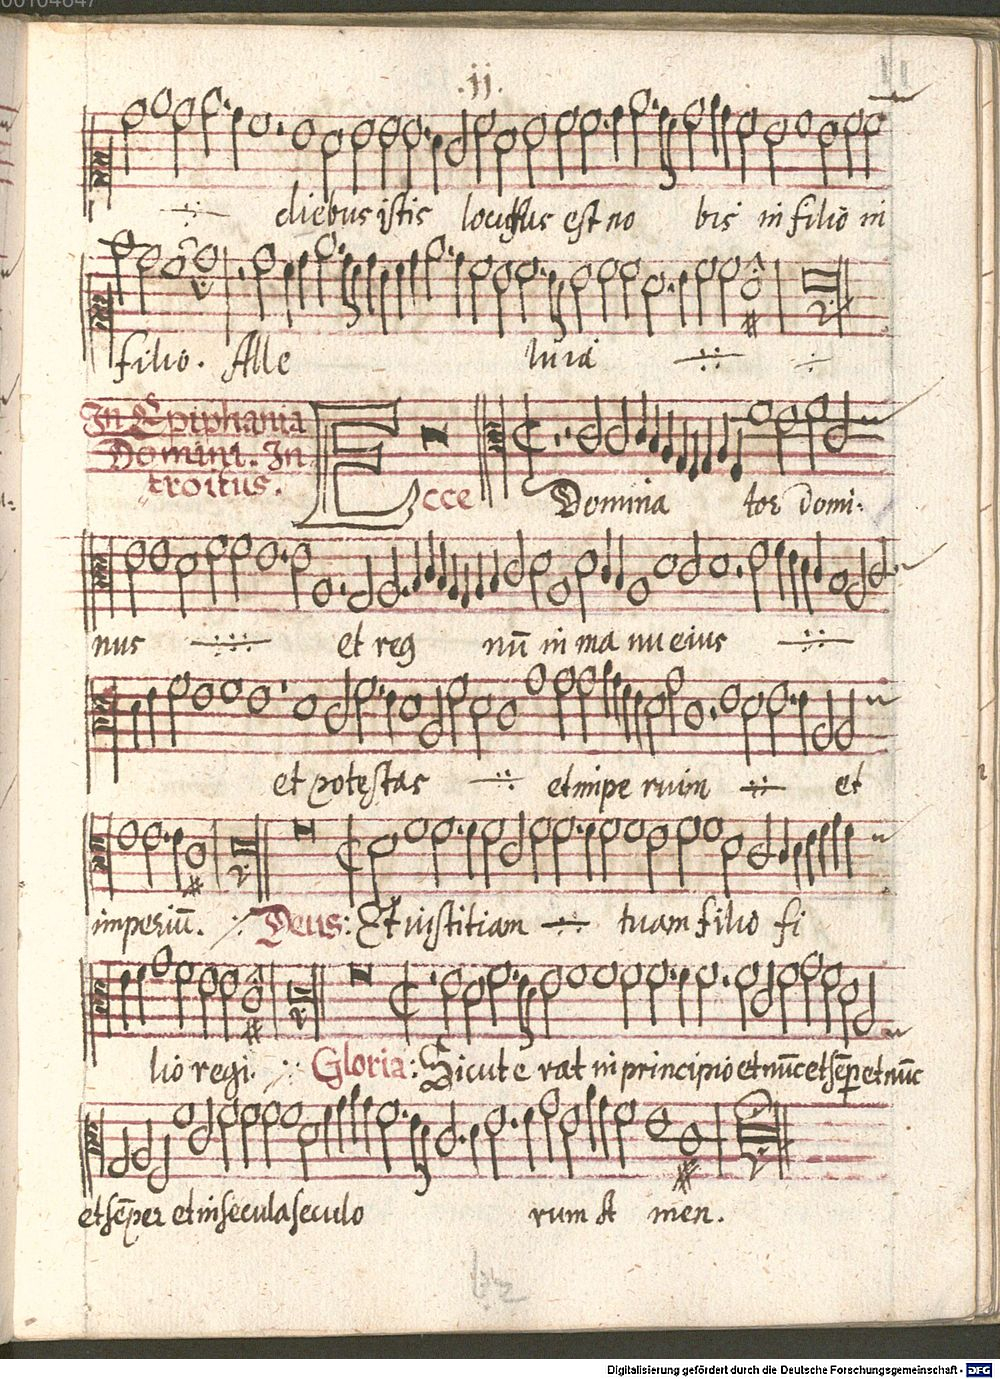 00104647
.ij.
11
diebus istis locutus est no bis in filio in
filio. Alle luia
In Epiphania
Domini. In
troitus.
Ecce Domina tor domi-
nus et reg nū in ma nu eius
et potestas et impe rium et
imperiū. Deus: Et iustitiam tuam filio fi
lio regi. Gloria: Sicut e rat in principio et nūc et sēp et nūc
et sēper et in secula seculo rum A men.
Digitalisierung gefördert durch die Deutsche Forschungsgemeinschaft - DFG